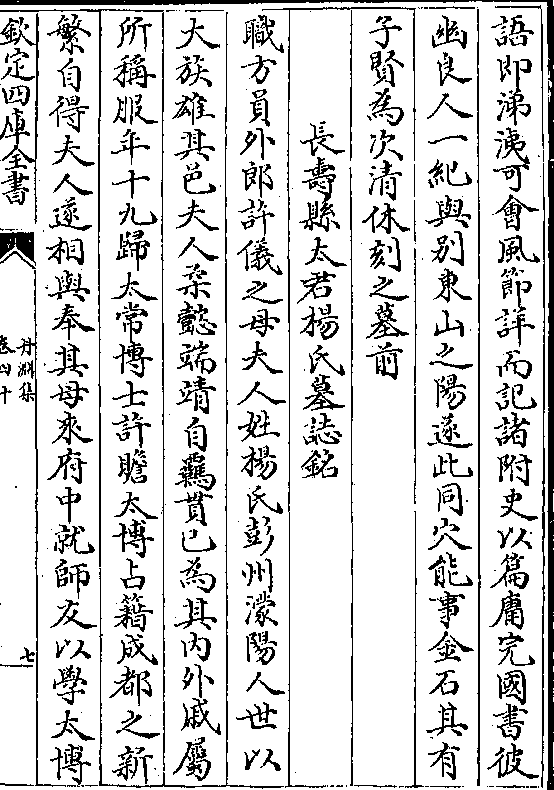 語即涕洟可會風節詳而記諸附史以篇庸完國書彼
幽良人一紀與别東山之陽遂此同穴能事金石其有
子賢為次清休刻之墓前
長壽縣太君楊氏墓誌銘
職方員外郎許儀之母夫人姓楊氏彭州濛陽人世以
大族雄其邑夫人柔懿端靖自羈貫已為其内外戚屬
所稱服年十九歸太常博士許瞻太博占籍成都之新
繁自得夫人遂相與奉其母來府中就師友以學太博
欽定四庫全書
丹淵集
卷四十
七